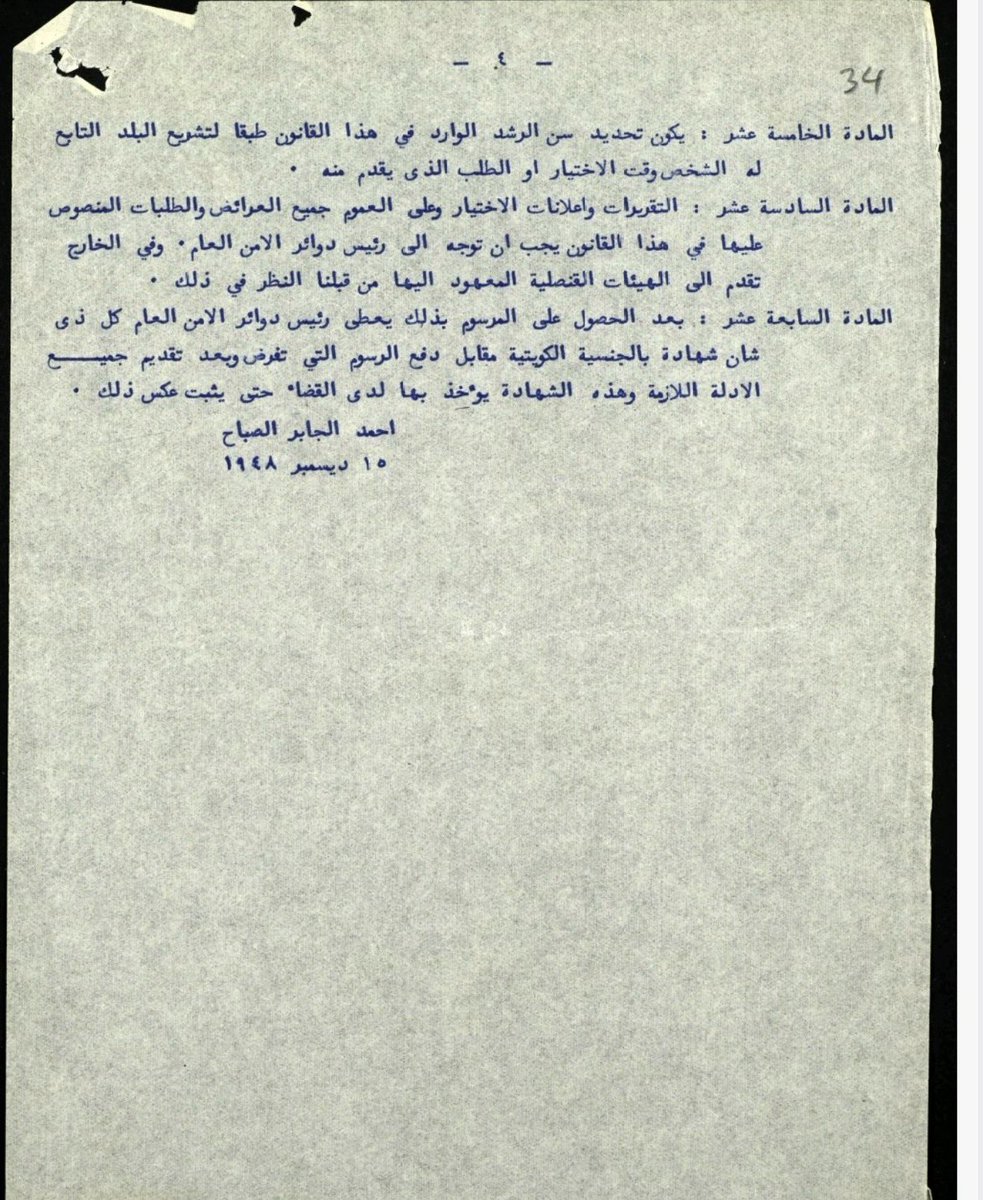 — ٤ —
34
المادة الخامسة عشر : يكون تحديد سن الرشد الوارد في هذا القانون طبقا لتشريع البلد التابع
له الشخص وقت الاختيار او الطلب الذى يقدم منه ٠
المادة السادسة عشر : التقريرات واعلانات الاختيار وعلى العموم جميع العرائض والطلبات المنصوص
عليها في هذا القانون يجب ان توجه الى رئيس دوائر الامن العام٠ وفي الخارج
تقدم الى الهيئات القنصلية المعهود اليها من قبلنا النظر في ذلك ٠
المادة السابعة عشر : بعد الحصول على المرسوم بذلك يعطى رئيس دوائر الامن العام كل ذى
شان شهادة بالجنسية الكويتية مقابل دفع الرسوم التي تفرض وبعد تقديم جميـــــع
الادلة اللازمة وهذه الشهادة يؤخذ بها لدى القضاء حتى يثبت عكس ذلك ٠
احمد الجابر الصباح
١٥ ديسمبر ١٩٤٨